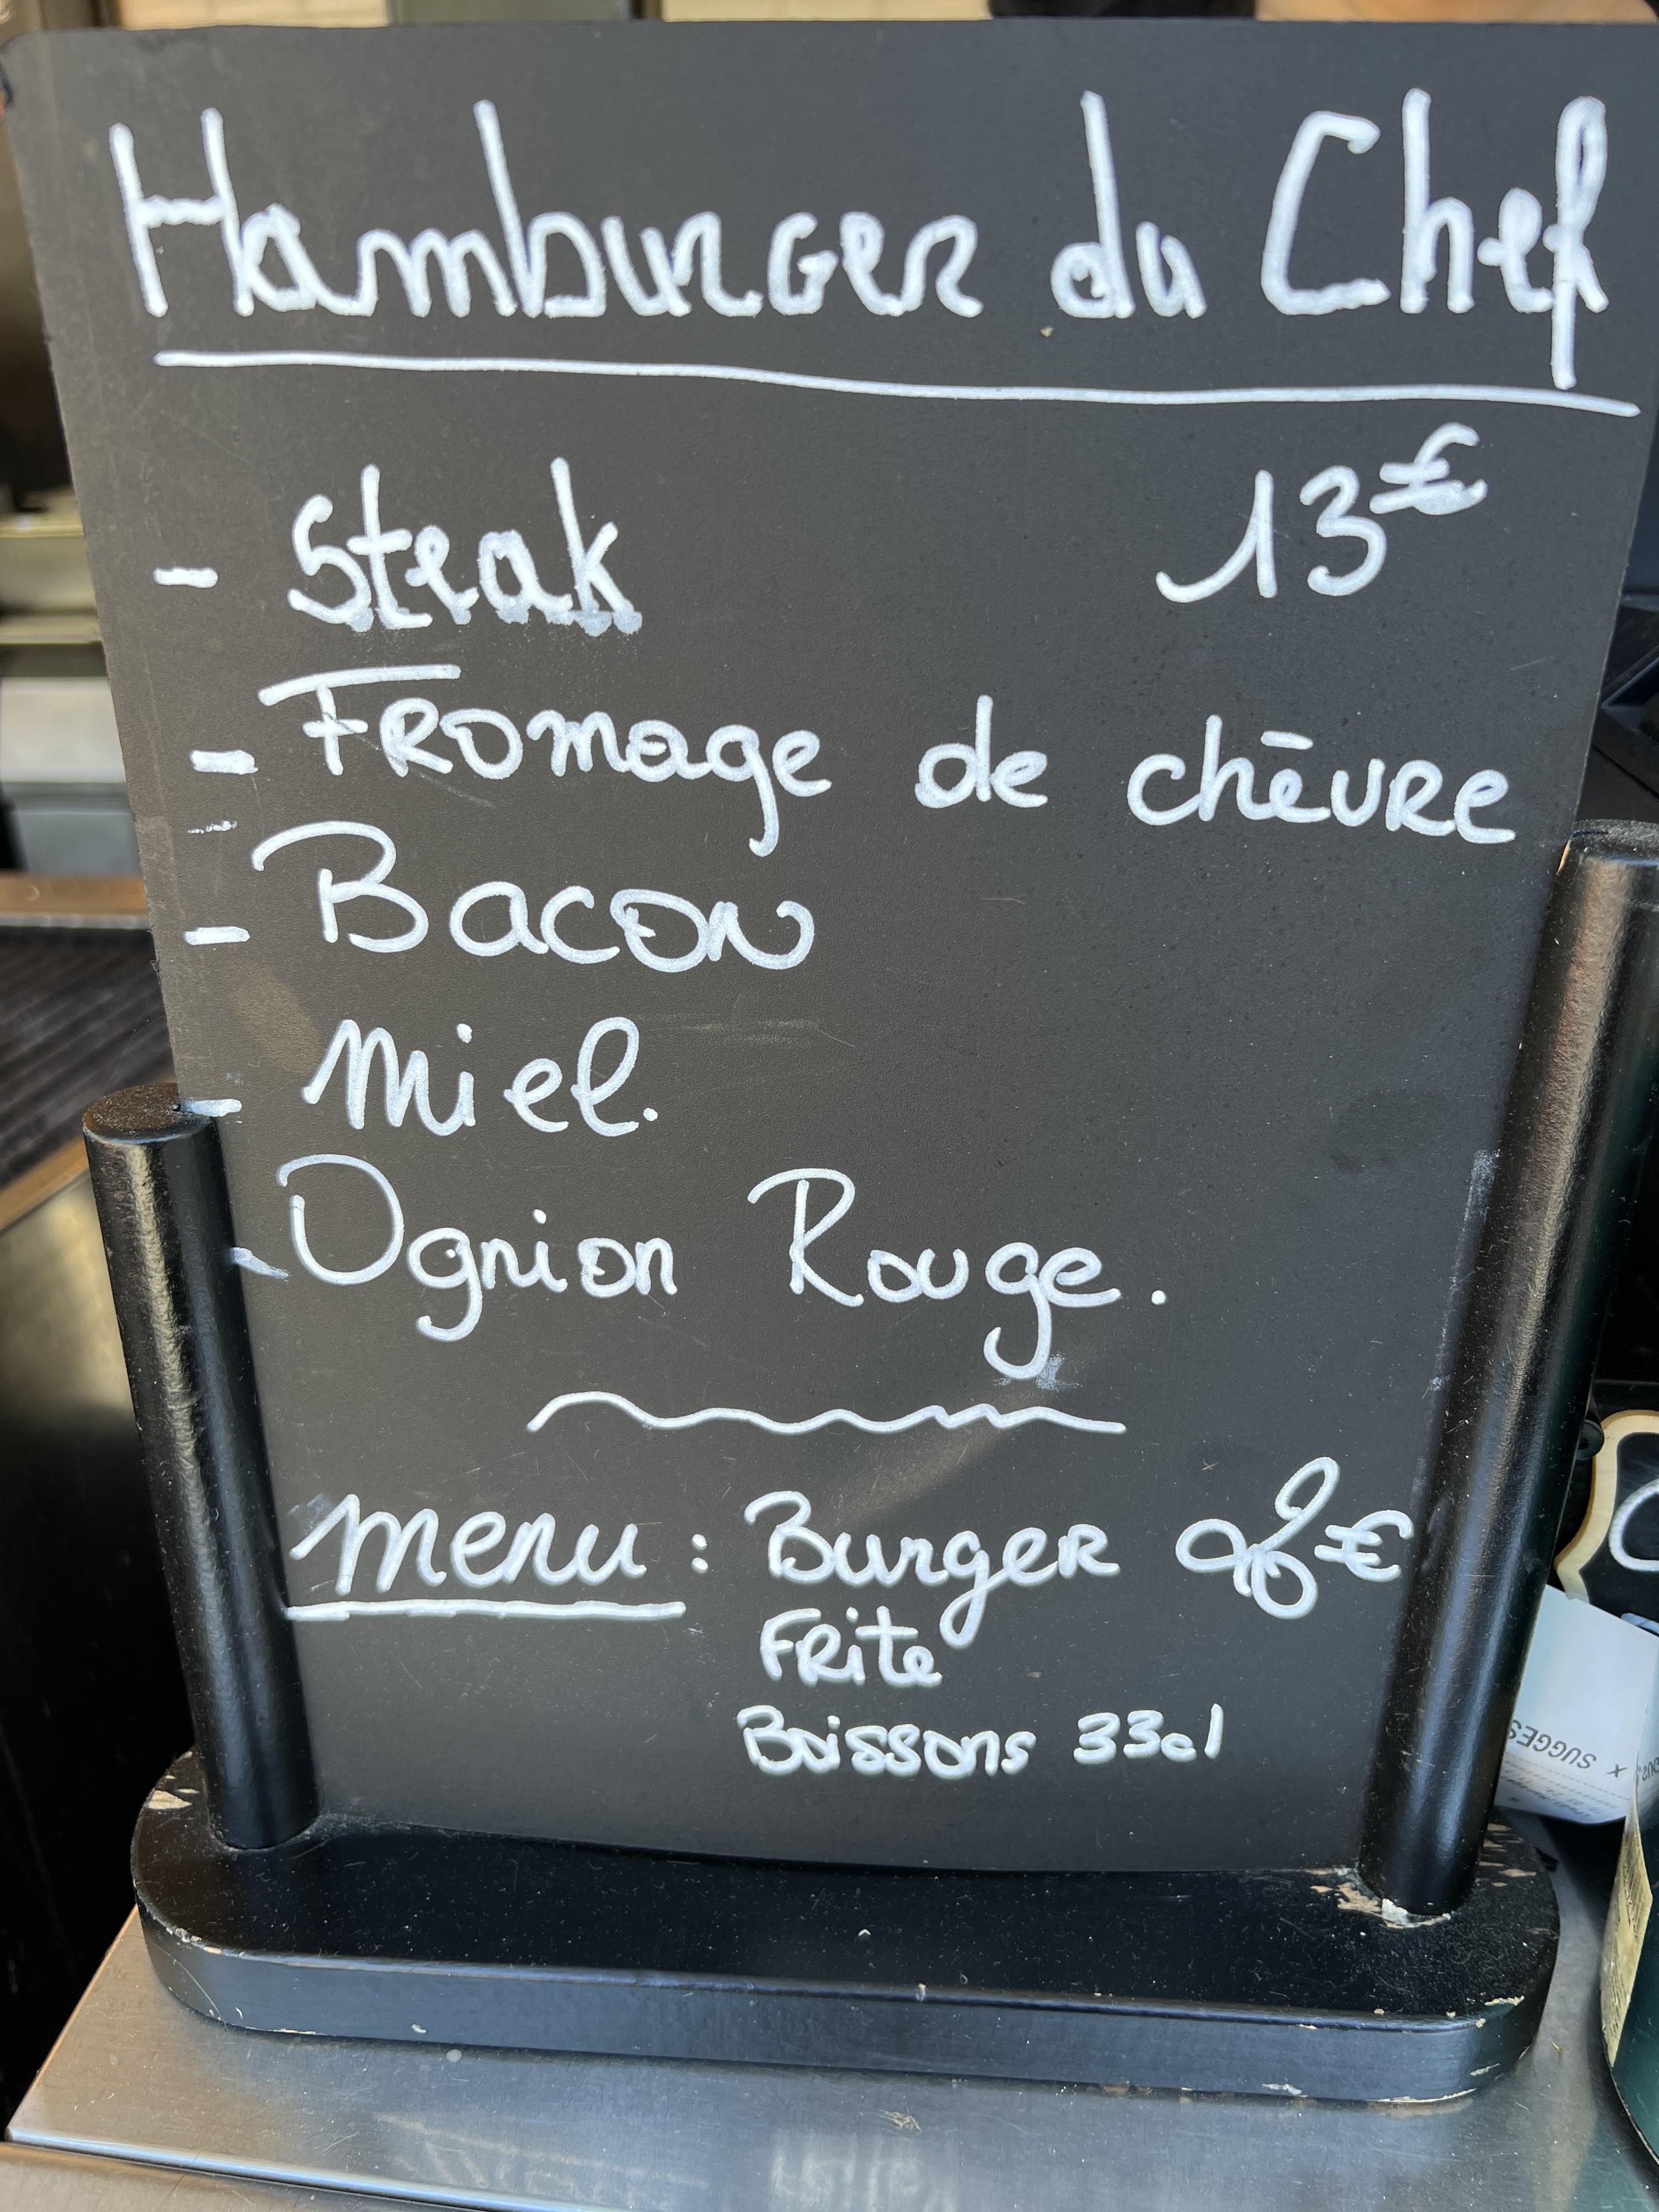 Hamburger du Chef
- Steak 13€
- Fromage de chèvre
- Bacon
- Miel.
- Ognion Rouge.
menu : Burger €
Frite
Boissons 33cl
x SUGGES